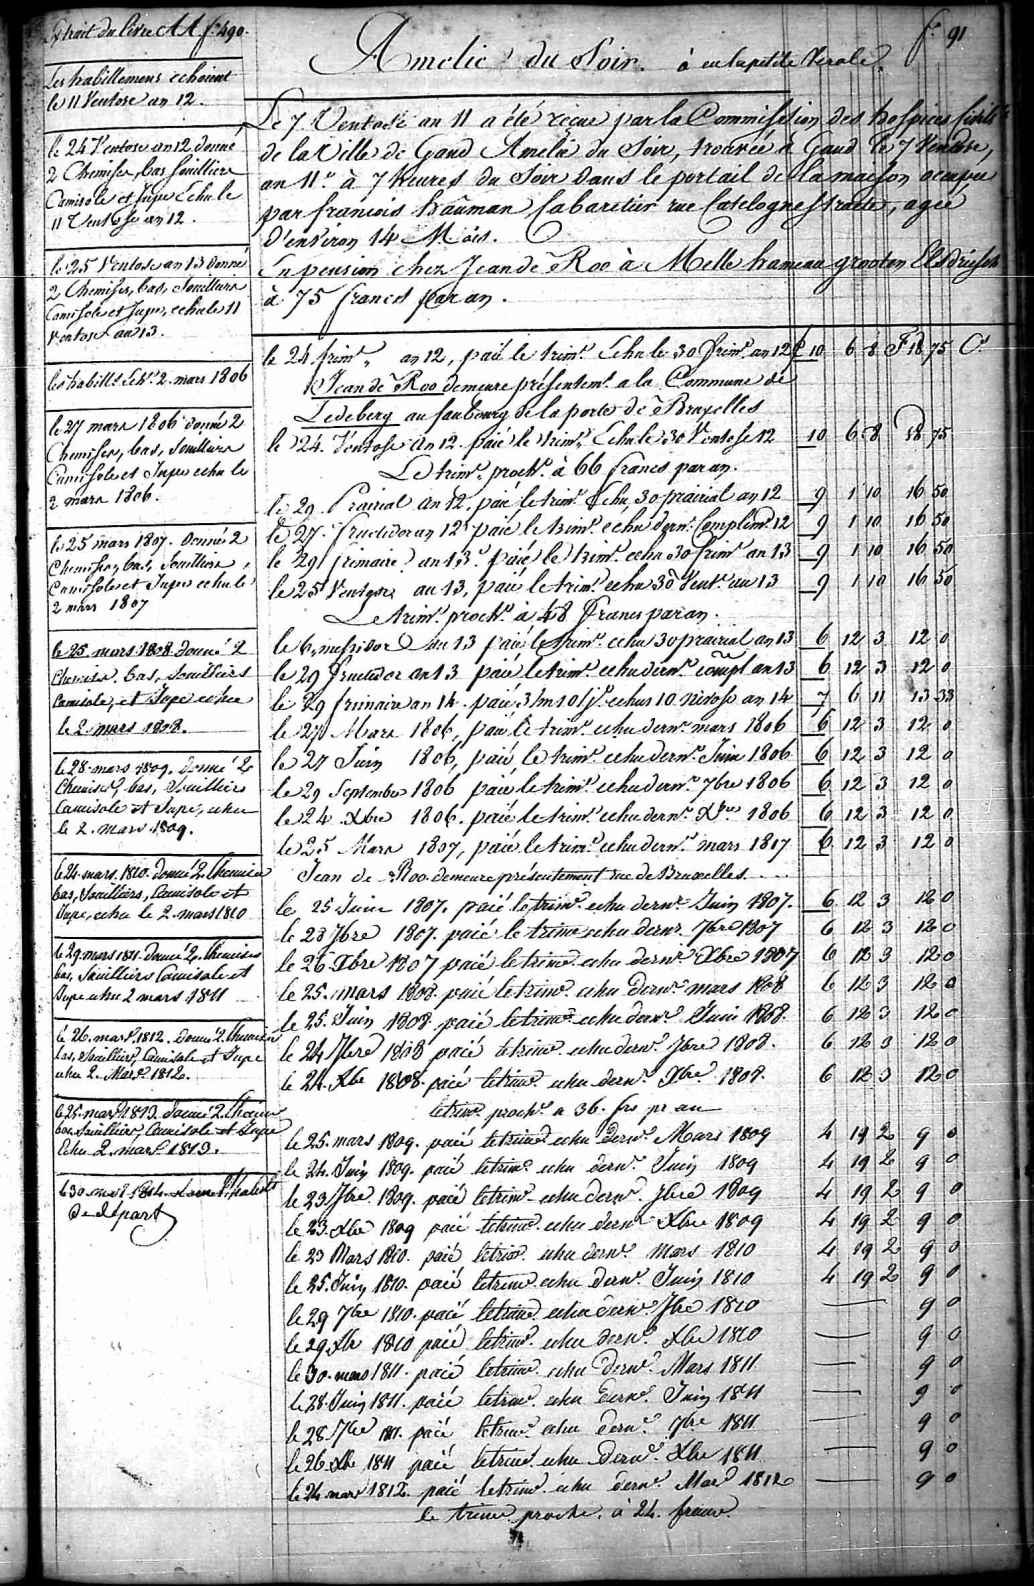 Extrait du Livre AA f° 490.
f° 91
Amelie du Soir. à eu la petite Verole.
Les habillemens echoient
le 11 Ventose an 12.
le 24 Ventose an 12 donné
2 Chemises, bas, Souilliers
Camisole et Jupe Echu le
11 Ventose an 12.
le 25 Ventose an 13 donné
2 Chemises, bas, Souilliers
Camisole et Jupe, echu le 11
Ventose an 13.
les habill.s Ech.t 2. mars 1806
le 27 mars 1806 donné 2
Chemises, bas, Souilliers
Camisole et Jupe echu le
2 mars 1806.
le 25 mars 1807. Donné 2
Chemises, bas, Souilliers,
Camisole et Jupe echu le
2 mars 1807
le 25 mars 1808 donné 2
Chemises, bas, Souilliers
Camisole, et Jupe echu
le 2 mars 1808.
le 28 mars 1809. donné 2
Chemises, bas, Souilliers
Camisole et Jupe, echu
le 2. mars 1809.
le 24. mars. 1810. donné 2 Chemises
bas, Souilliers, Camisole et
Jupe, echu le 2. mars 1810
le 29. mars 1811. donné 2. Chemises
bas, Souilliers Camisole et
Jupe echu 2 mars 1811
le 26. mars 1812. donné 2. Chemises
bas, Souilliers Camisole et Jupe
echu 2. Mars 1812.
le 25. mars 1813. donné 2. Chemises
bas, Souilliers, Camisole et Jupe
Echu 2. mars 1813.
le 30. 1814. donné
de départ
Le 7 Ventose an 11 a été reçue par la Commission des hospices Civils
de la Ville de Gand Amelie du Soir, trouvée à Gand le 7 Ventose,
an 11.e à 7 heures du Soir dans le portail de la maison occupée
par francois haûman Cabaretier rue Catelogne Straete, agée
D'environ 14 Mois.
En pension chez Jean de Roo à Melle hameau grooten
à 75 francs par an.
le 24. frim.e an 12, paié le trim.e Echu le 30 frim.e an 12 £ 10 6 8 F 18 75 C.s
Jean de Roo demeure présentem.t a la Commune de
Ledeberg au faubourg de la porte de Bruxelles
le 24. Ventose an 12. paié le trim.e Echu le 30 Ventose 12 10 6 8 18 75
Le trim.e proch.n à 66 francs par an.
le 29. Prairial an 12. paié le trim.e Echu, 30 prairial an 12 9 1 10 16 50
le 27. fructidor an 12 paié le trim.e echu dern.r Complim.e 12 9 1 10 16 50
le 29 frimaire an 13. paié le trim.e echu 30 frim.e an 13 9 1 10 16 50
le 25 Ventose an 13, paié le trim.e echu 30 Vent.e an 13 9 1 10 16 50
Le trim.e proch.n à 48 francs par an.
le 6, messidor an 13 paié le trim.e echu 30 prairial an 13 6 12 3 12 0
le 29 fructidor an 13 paié le trim.e echu dern.r compl an 13 6 12 3 12 0
le 29 frimaire an 14. paié 3 m 10 j.s echus 10. nivose an 14 7 6 11 13 33
le 27 Mars 1806, paié le trim.e echu dern.r mars 1806 6 12 3 12 0
le 27 Juin 1806, paié, le trim.e echu dern.r Juin 1806 6 12 3 12 0
le 29 Septembre 1806 paié le trim.e echu dern.r 7bre 1806 6 12 3 12 0
le 24 Xbre 1806. paié le trim.e echu dern.r Xbre 1806 6 12 3 12 0
le 25 Mars 1807, paié le trim.e echu dern.r mars 1817 6 12 3 12 0
Jean de Roo demeure présentement rue de Bruxelles....
le 25 Juin 1807. paié le trim.e echu dern.r Juin 1807. 6 12 3 12 0
le 28 7bre 1807. paié le trim.e echu dern.r 7bre 1807 6 12 3 12 0
le 26 Xbre 1807 paié le trim.e echu dern.r Xbre 1807 6 12 3 12 0
le 25. mars 1808. paié le trim.e echu dern.r mars 1808 6 12 3 12 0
le 25. Juin 1808. paié le trim.e echu dern.r Juin 1808. 6 12 3 12 0
le 24 7bre 1808 paié le trim.e echu dern.r 7bre 1808. 6 12 3 12 0
le 24. Xbre 1808 paié le trim.e echu dern.r Xbre 1808. 6 12 3 12 0
le trim.e proch.n a 36. frs pr an
le 25. mars 1809. paié le trim.e echu dern.r Mars 1809 4 19 2 9 0
le 24. Juin 1809. paié le trim.e echu dern.r Juin 1809 4 19 2 9 0
le 23 7bre 1809. paié le trim.e echu dern.r 7bre 1809 4 19 2 9 0
le 23. Xbre 1809 paié le trim.e echu dern.r Xbre 1809 4 19 2 9 0
le 23 Mars 1810. paié le trim.e echu dern.r Mars 1810 4 19 2 9 0
le 25. Juin 1810. paié le trim.e echu dern.r Juin 1810 4 19 2 9 0
le 29 7bre 1810. paié le trim.e echu dern.r 7bre 1810 — 9 0
le 29 Xbre 1810 paié le trim.e echu dern.r Xbre 1810 — 9 0
le 30. mars 1811. paié le trim.e echu dern.r Mars 1811 — 9 0
le 28. Juin 1811. paié le trim.e echu dern.r Juin 1811 — 9 0
le 28. 7bre 1811. paié le trim.e echu dern.r 7bre 1811 — 9 0
le 26 Xbre 1811 paié le trim.e echu dern.r Xbre 1811 — 9 0
le 24 mars 1812. paié le trim.e echu dern.r Mars 1812 — 9 0
le trim.e proche. à 24. francs.